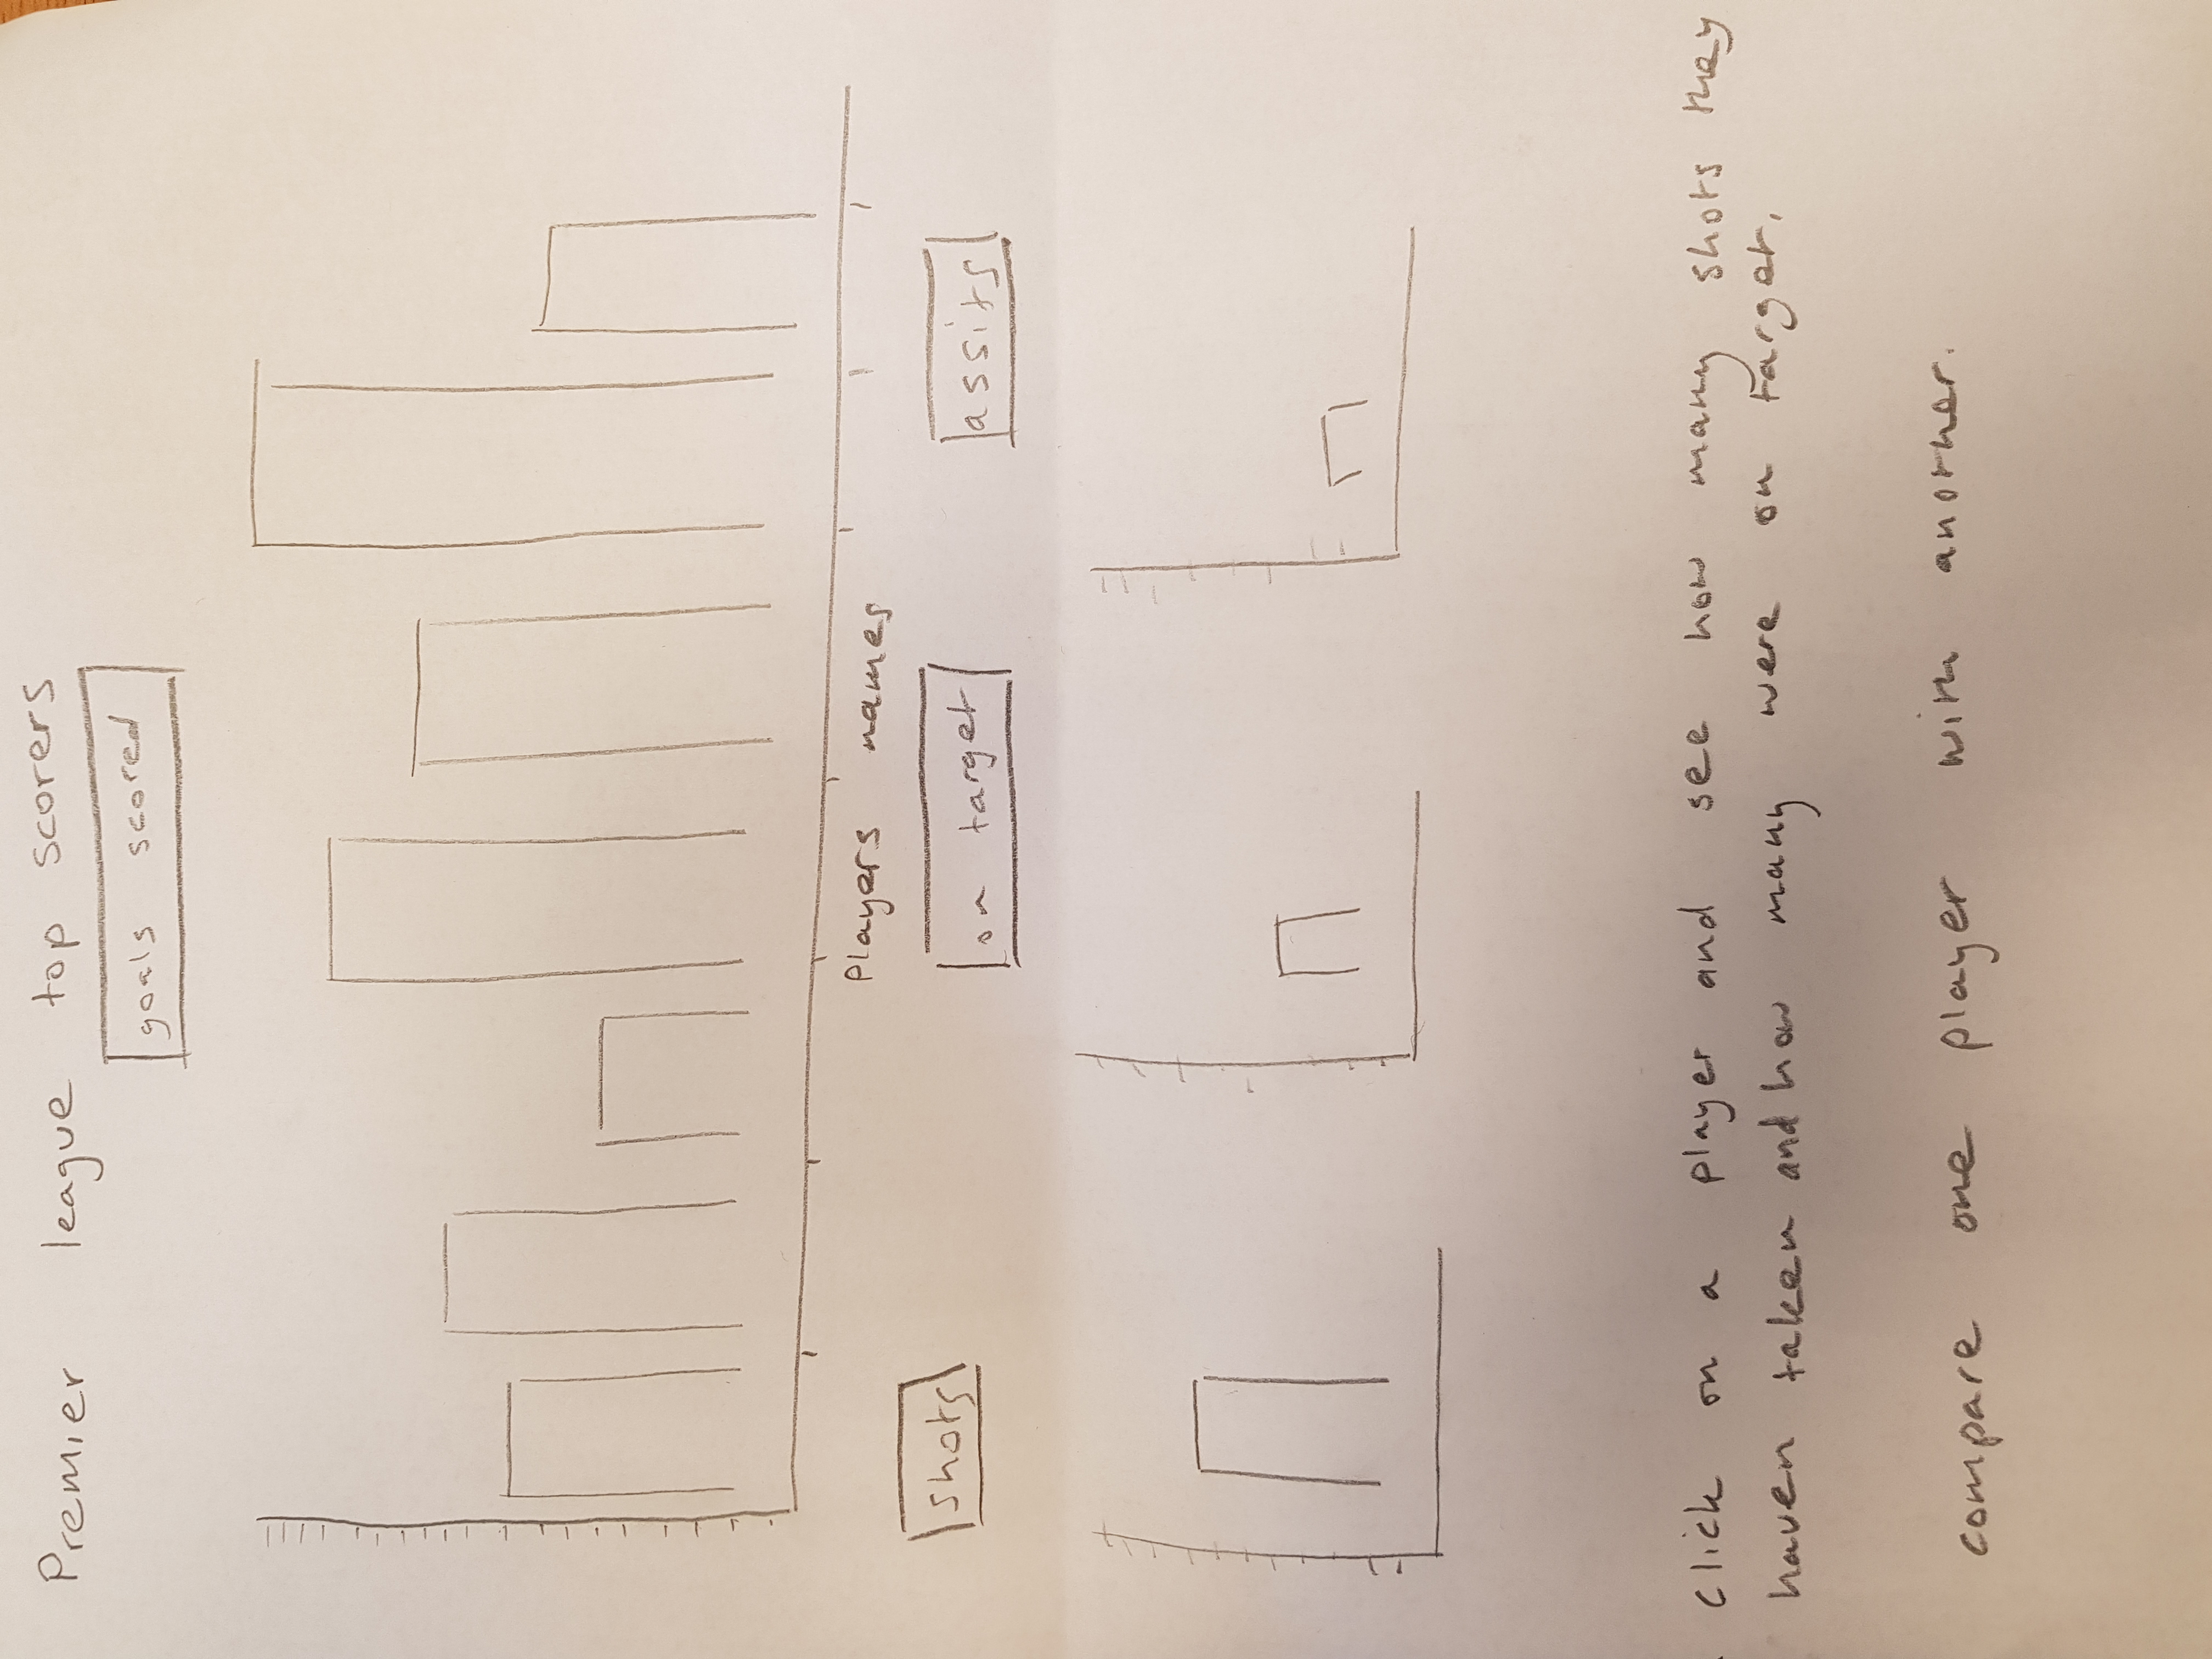 Premier league top scorers
goals scored
Players names
shots
on target
assits
click on a player and see how many shots they
haven taken and how many were on target.
compare one player with another.